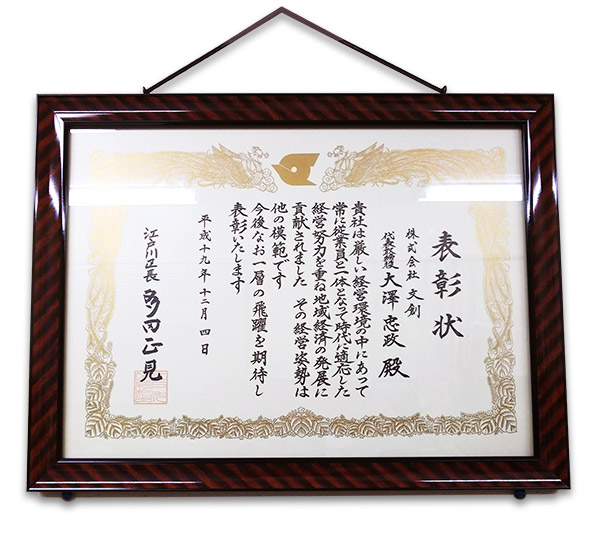 表彰状
株式会社 文創
代表取締役 大澤忠政 殿
貴社は厳しい経営環境の中にあって
常に従業員と一体となって時代に適応した
経営努力を重ね地域経済の発展に
貢献されました その経営姿勢は
他の模範です
今後なお一層の飛躍を期待し
表彰いたします
平成十九年十二月四日
江戸川区長 多田正見